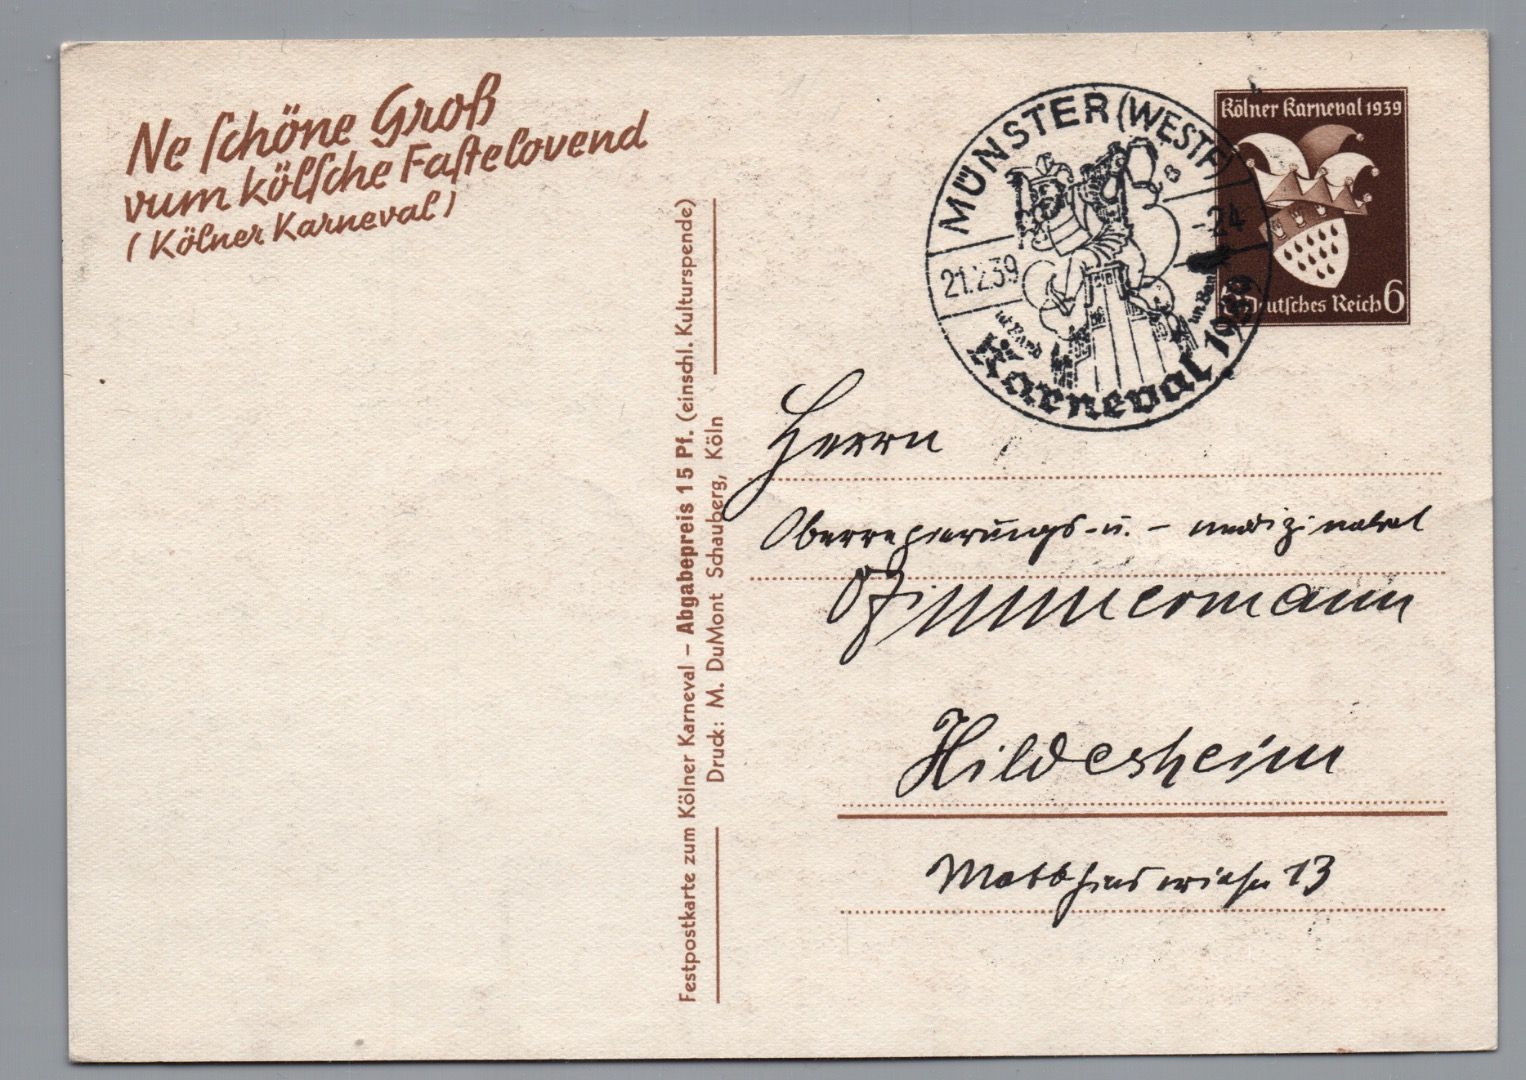 Ne schöne Groß
vum kölsche Fastelovend
(Kölner Karneval)
Festpostkarte zum Kölner Karneval – Abgabepreis 15 Pf. (einschl. Kulturspende)
Druck: M. DuMont Schauberg, Köln
MÜNSTER (WESTF)
21.2.39
-24
Karneval 1939
Kölner Karneval 1939
Deutsches Reich 6
Herrn
Oberregierungs- u. – medizinalrat
Zimmermann
Hildesheim
Matthiaswiese 13